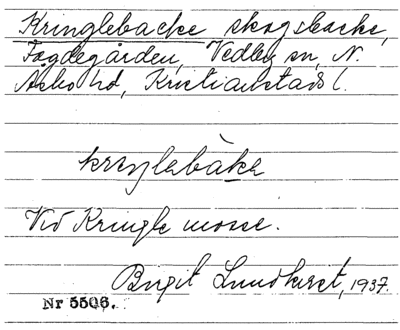 Kringlebacke skogsbacke,
Fogdegården, Vedby sn, N.
Åsbo hd, Kristianstads l.
kryŋlebàkə
Vid Kringle mosse.
Birgit Lundkvist, 1937.
Nr 5506.